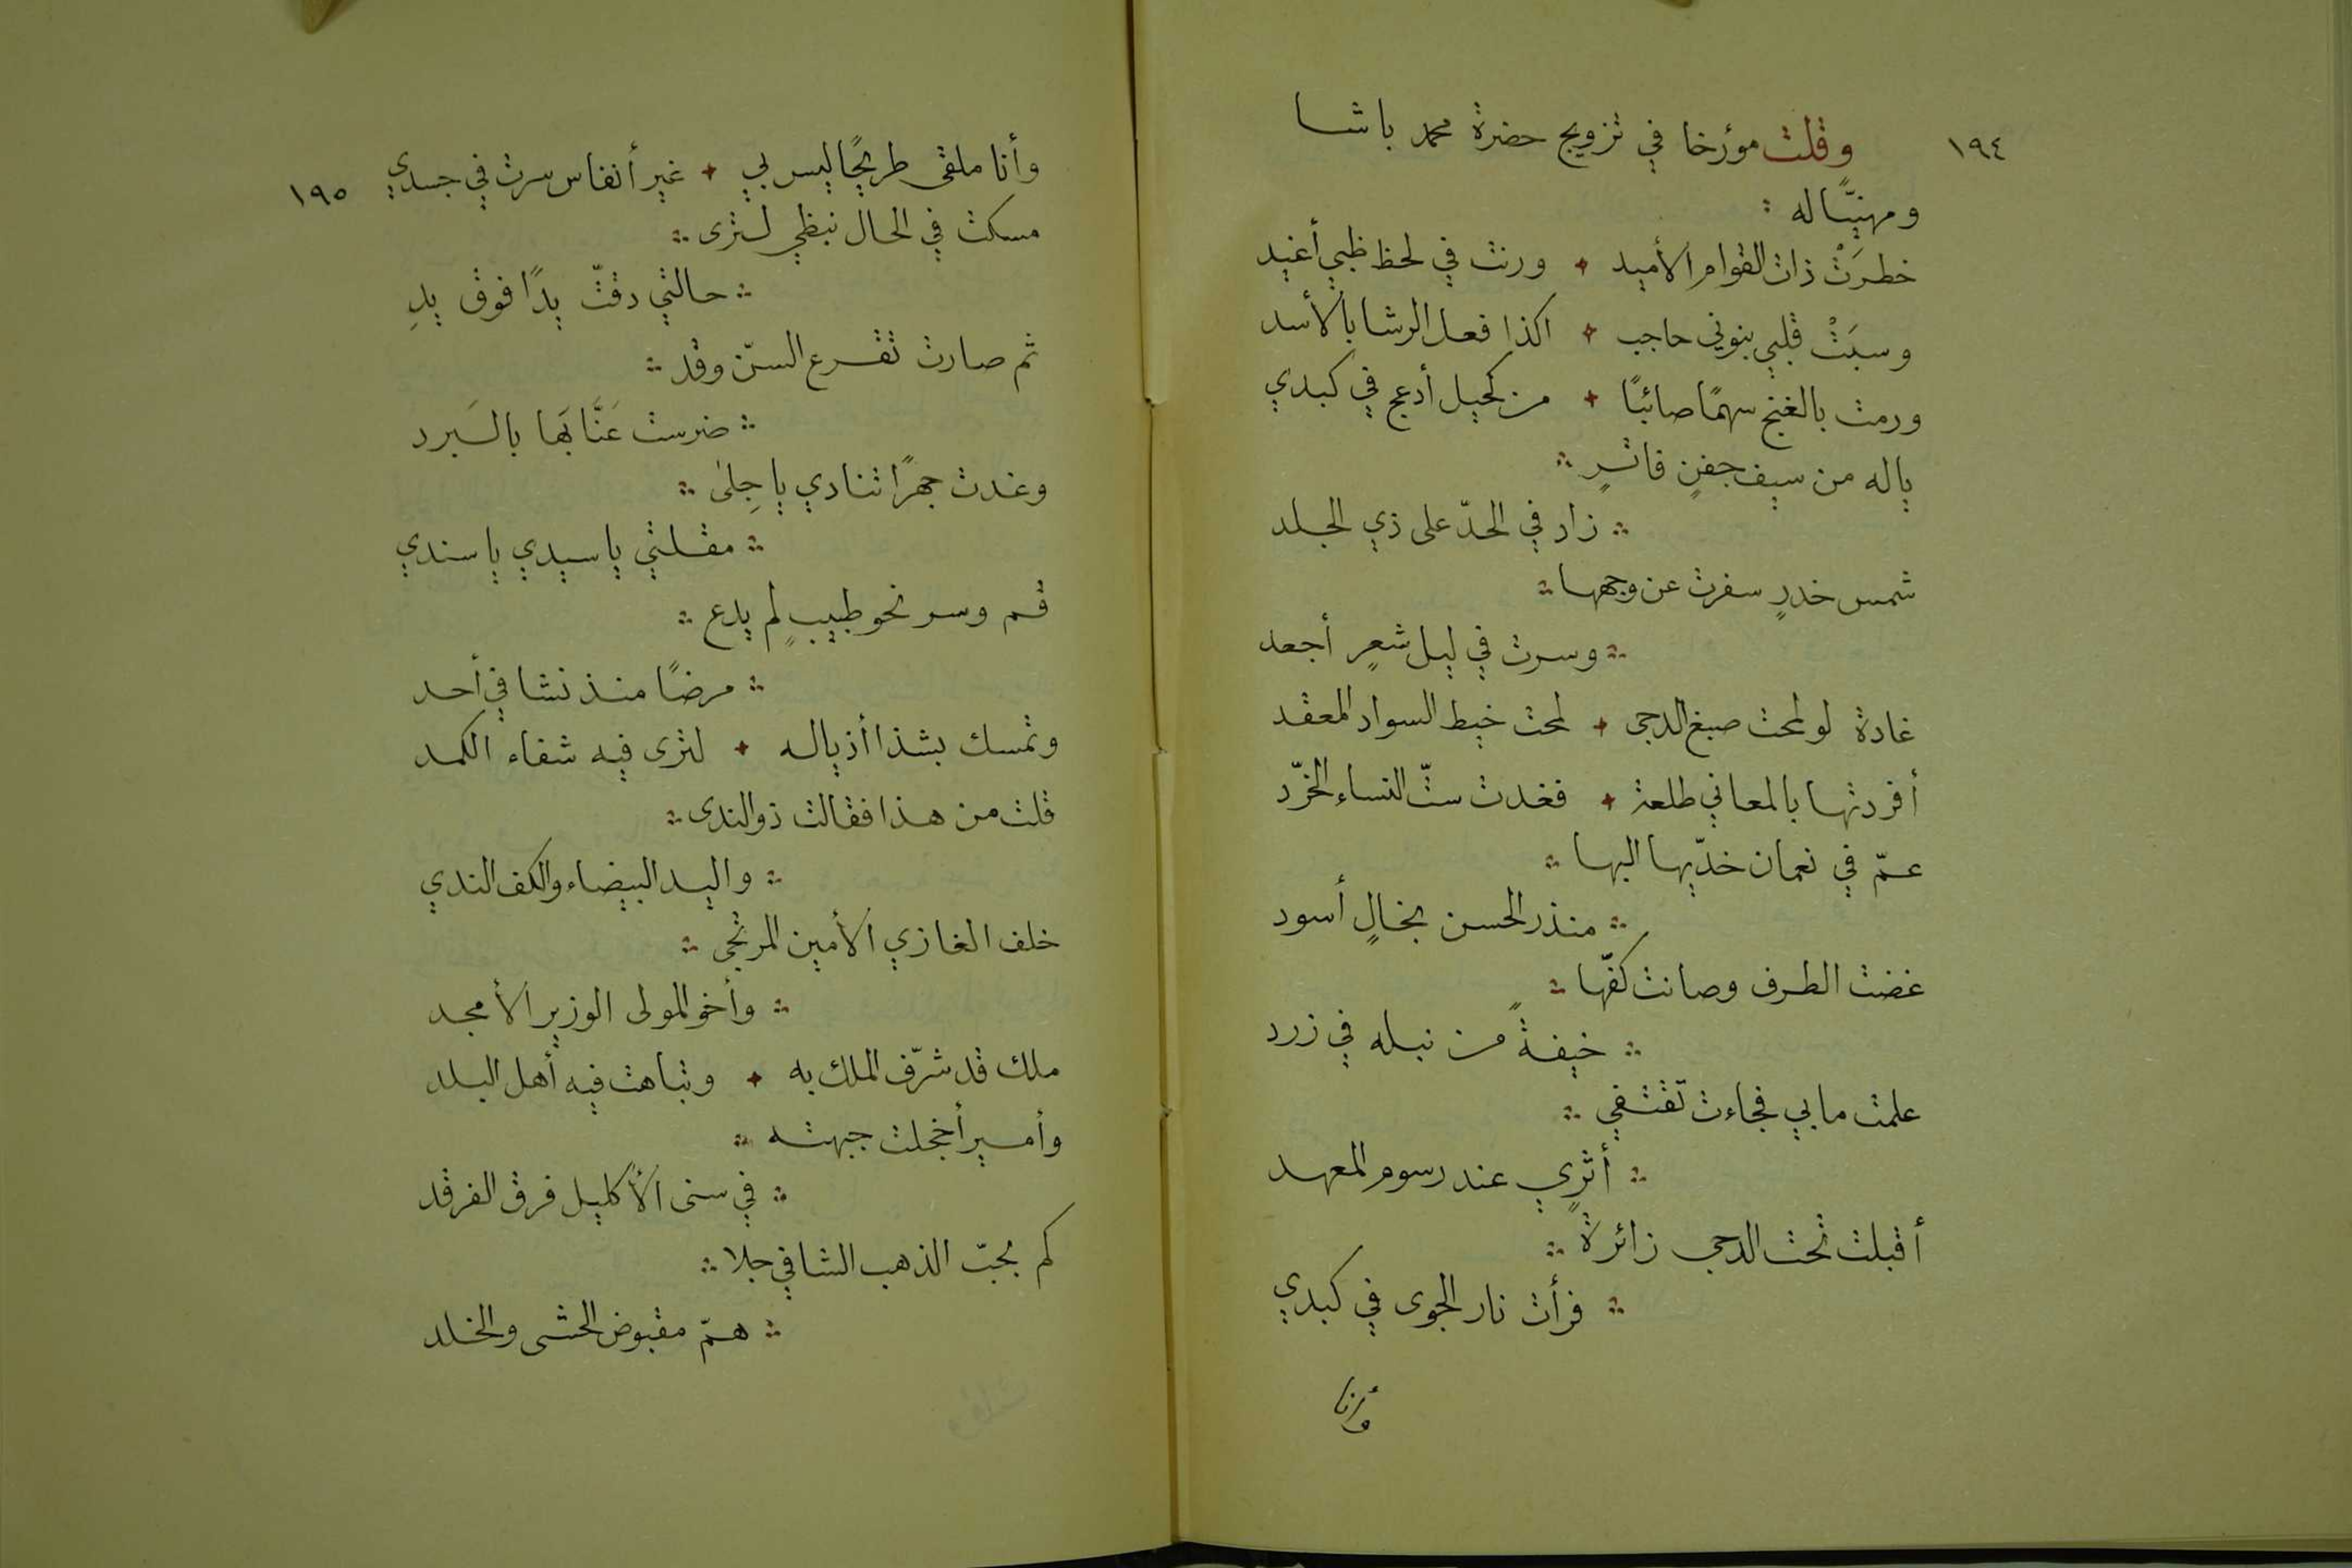 ١٩٤
وقلت مؤرخا في تزويج حضرة محمد باشا
ومهنيًّا له :
خطرَتْ ذات القوام الأميد + ورنت في لحظ ظبي أغيد
وسبَتْ قلبي بنوني حاجب + اكذا فعل الرشا بالأسد
ورمت بالغنج سهمًا صائبًا + من كحيل أدعج في كبدي
ياله من سيف جفنٍ فاترٍ ∴
∴ زاد في الحدّ على ذي الجلد
شمس خدرٍ سفرت عن وجهها ∴
∴ وسرت في ليل شعرٍ أجعد
غادة لو لمحت صبغ الدجى + لمحت خيط السواد المعقد
أفردتها بالمعاني طلعة + فغدت ستّ النساء الخرّد
عمّ في نعمان خدّيها البها ∴
∴ منذر الحسن بخالٍ أسود
غضت الطرف وصانت كفّها ∴
∴ خيفةً من نبله في زرد
علمت مابي فجاءت تقتفي ∴
∴ أثري عند رسوم المعهد
أقبلت تحت الدجى زائرةً ∴
∴ فرأت نار الجوى في كبدي
وأنا
١٩٥
وأنا ملقى طريحًا ليس لي + غير أنفاس سرت في جسدي
مسكت في الحال نبظي لترى ∴
∴ حالتي دقّت يدًا فوق يدِ
ثم صارت تقرع السنّ وقد ∴
∴ ضرست عَنَّابَها بالبَرد
وغدت جهرًا تنادي ياجِلىٰ ∴
∴ مقلتي ياسيدي ياسندي
قم وسر نحو طبيبٍ لم يدع ∴
∴ مرضًا منذ نشا في أحد
وتمسك بشذا أذياله + لترى فيه شفاء الكمد
قلت من هذا فقالت ذو الندى ∴
∴ واليد البيضاء والكف الندي
خلف الغازي الأمين المرتجى ∴
∴ وأخو المولى الوزير الأمجد
ملك قد شرّف الملك به + وتباهت فيه أهل البلد
وأمير أخجلت جبهته ∴
∴ في سنى الأكليل فرق الفرقد
كم بحبّ الذهب الشافي جلا ∴
∴ همّ مقبوض الحشى والخلد